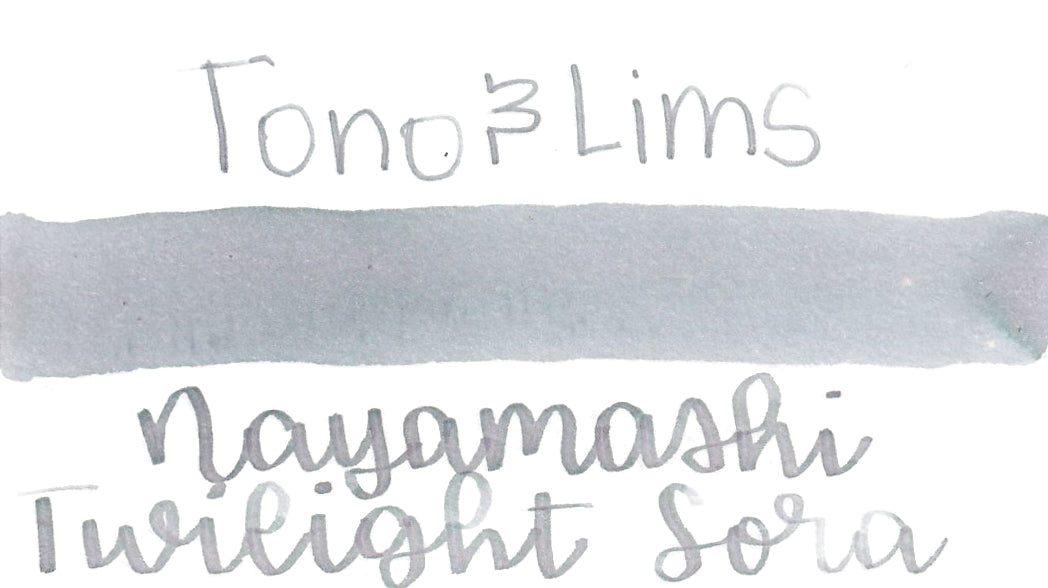 Tono & Lims
Nayamashi
Twilight Sora